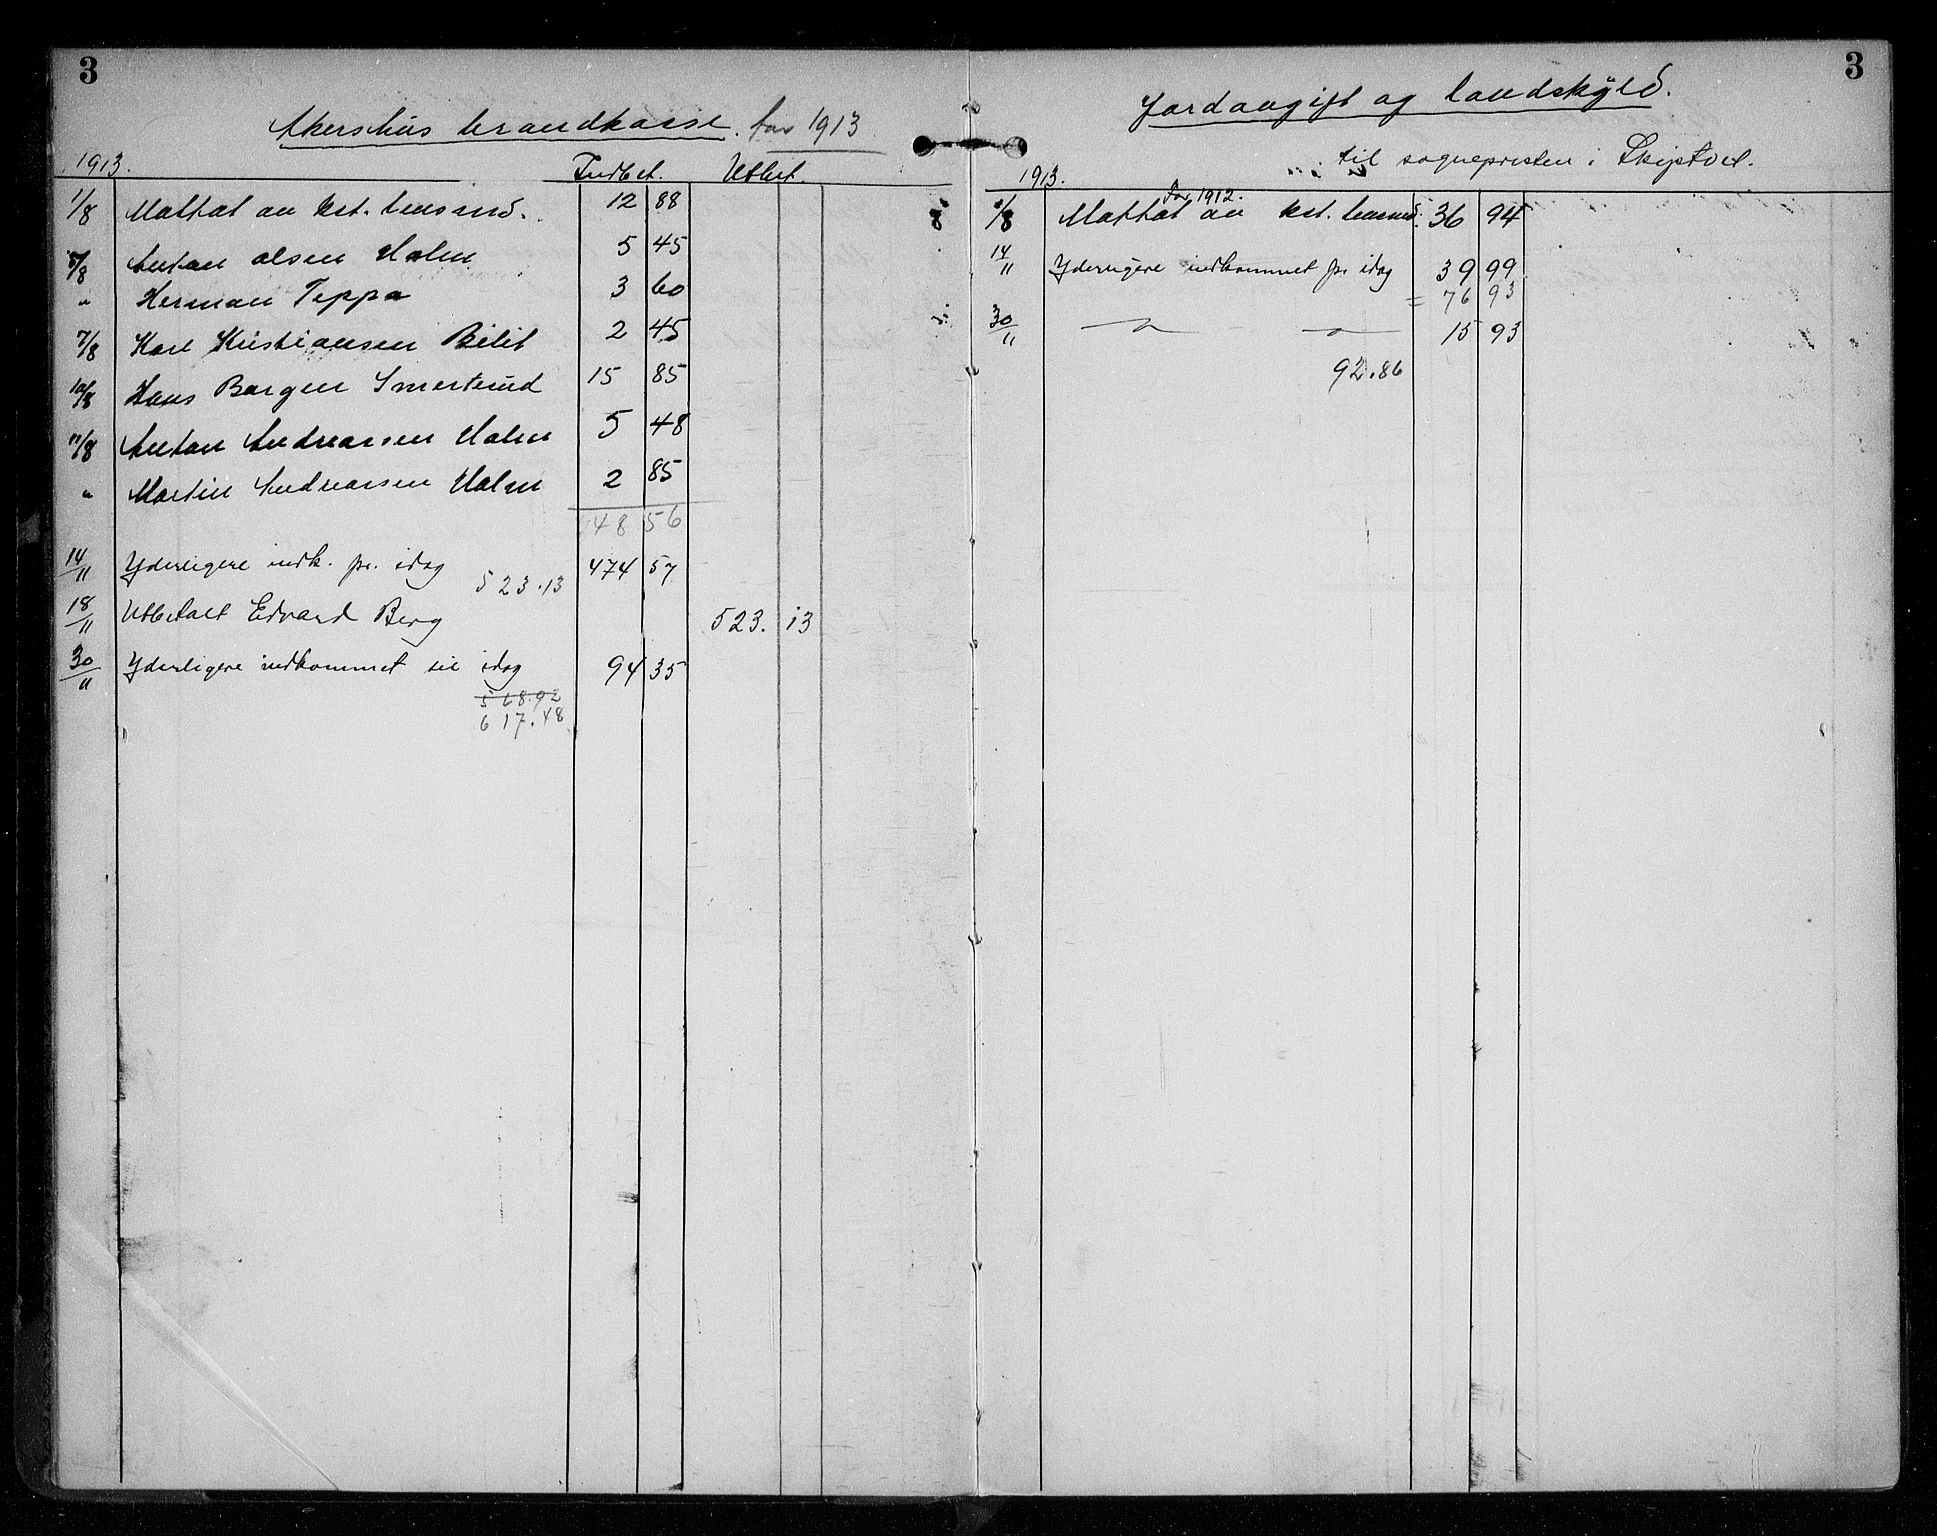 3
Akershus brandkasse. for 1913
1913. Indbet. Utbet.
1/8 Mottat av kst. lensmd. 12 88
5/8 Anton Olsen Holm 5 45
" Herman Teppa 3 60
7/8 Karl Kristiansen Bilit 2 45
10/8 Hans Borgen Smerterud 15 85
11/8 Anton Andreassen Holm 5 48
" Martin Andreassen Holm 2 85
48 56
14/11 Yderligere indk. pr. idag 474 57
523.13
18/11 Utbetalt Edvard Berg 523. 13
30/11 Yderligere indkommet til idag 94 35
568.92
617.48
3
Jordavgift og landskyld.
til sognepresten i Skiptvet.
1913.
For 1912.
1/8 Mottat av kst. lensmd. 36 94
14/11 Yderligere indkommet pr idag 39 99
= 76 93
30/11 — " — — " — 15 93
92.86